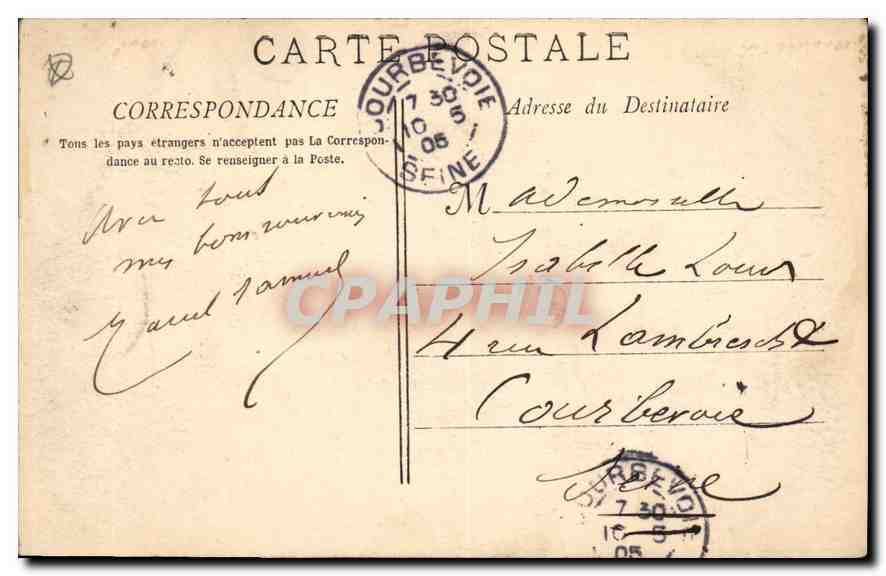 CARTE POSTALE
CORRESPONDANCE
Tous les pays étrangers n'acceptent pas La Correspon-
dance au recto. Se renseigner à la Poste.
Avec tout
mes bons souvenirs
Samuel
COURBEVOIE
7 30
10 5
05
SEINE
Adresse du Destinataire
Mademoiselle
Isabelle
4 rue
Courbevoie
Seine
COURBEVOIE
7 30
10 5
05
CPAPHIL